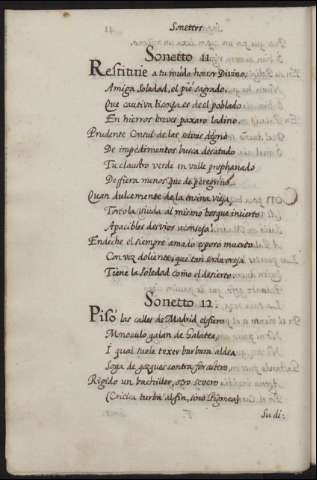 Sonettos
Sonetto 11
Restituie a tu mudo horror Divino,
Amiga Soledad, el pie sagrado,
Que cautiva lisonja es de el poblado
En hierros breves paxaro ladino.
Prudente Consul de las selvas digno
De impedimentos busca desatado
Tu claustro verde en valle prophanado
De fiera menos, que de peregrino.
Quan dulcemente de la encina vieja
Tortola viuda al mismo bosque incierto
Apacibles desvios aconseja!
Endeche el siempre amado esposo muerto
Con voz doliente, que tan sorda oreja
Tiene la Soledad como el desierto.
Sonetto 12
Pisó las calles de Madrid el fiero
Monoculo galan de Galatea
I qual suele texer barbara aldea
Soga de gozques contra forastero
Rigido un bachiller, otro severo
(Critica turba al fin, sino Pigmea)
Su di: